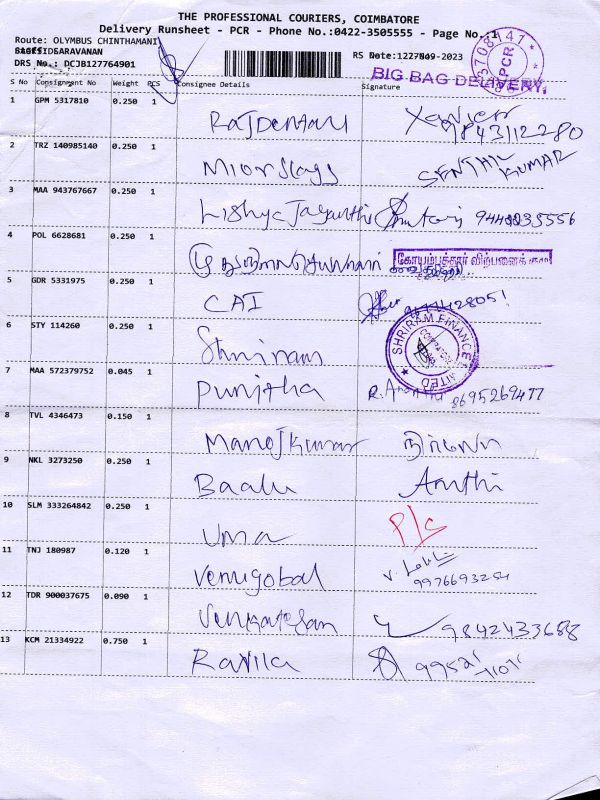 THE PROFESSIONAL COURIERS, COIMBATORE
Delivery Runsheet - PCR - Phone No.:0422-3505555 - Page No.:1
Route: OLYMBUS CHINTHAMANI
SARAVANAN
RS Date: -09-2023
DRS No.: DCJB127764901
3708147
PCR
BIG BAG DELIVERY.
S No Consignment No Weight PCS Consignee Details Signature
1 GPM 5317810 0.250 1 Rajdentaul Xavier
9843112280
2 TRZ 140985140 0.250 1 SENTHIL KUMAR
3 MAA 943767667 0.250 1 Lishya Jayanthi
4 POL 6628681 0.250 1 கோயம்புத்தூர் விற்பனைக் குழு
5 GDR 5331975 0.250 1 CAI
6 STY 114260 0.250 1 Shriram SHRIRAM FINANCE LIMITED
7 MAA 572379752 0.045 1 Punitha 8695269477
8 TVL 4346473 0.150 1 Manojkumar
9 NKL 3273250 0.250 1 Baalu Aruthi
10 SLM 333264842 0.250 1 Uma P/c
11 TNJ 180987 0.120 1 Venugobal
12 TDR 900037675 0.090 1 Venkatesan 9842433688
13 KCM 21334922 0.750 1